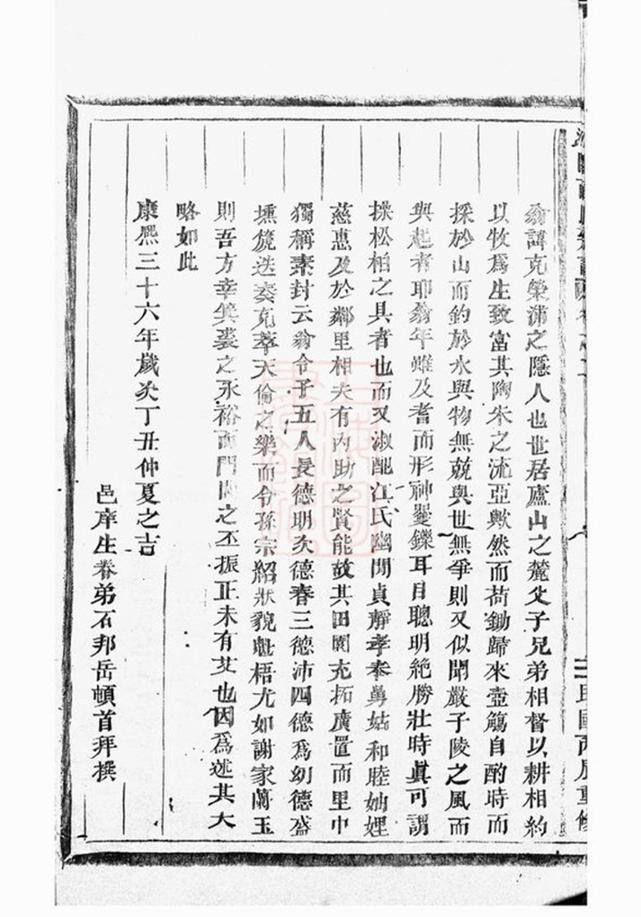 翁諱克榮蒲之隱人也世居廬山之麓父子兄弟相督以耕相約
以牧爲生致富其陶朱之流亞歟然而荷鋤歸來壺觴自酌時而
採於山而釣於水與物無兢與世無爭則又似聞嚴子陵之風而
興起者耶翁年雖及耆而形神矍鑠耳目聰明絶勝壯時眞可謂
操松柏之具者也而又淑配江氏幽閒貞靜孝奉舅姑和睦妯娌
慈惠及於鄰里相夫有內助之賢能故其田園充拓廣置而里中
獨稱素封云翁令子五人長德明次德春三德沛四德爲幼德盛
壎箎迭奏克萃天倫之樂而令孫宗紹狀貌魁梧尤如謝家蘭玉
則吾方幸箕裘之永裕而門閭之丕振正未有艾也因爲述其大
略如此
康熙三十六年歲次丁丑仲夏之吉
邑庠生眷弟石邦岳頓首拜撰
民國丙辰重修